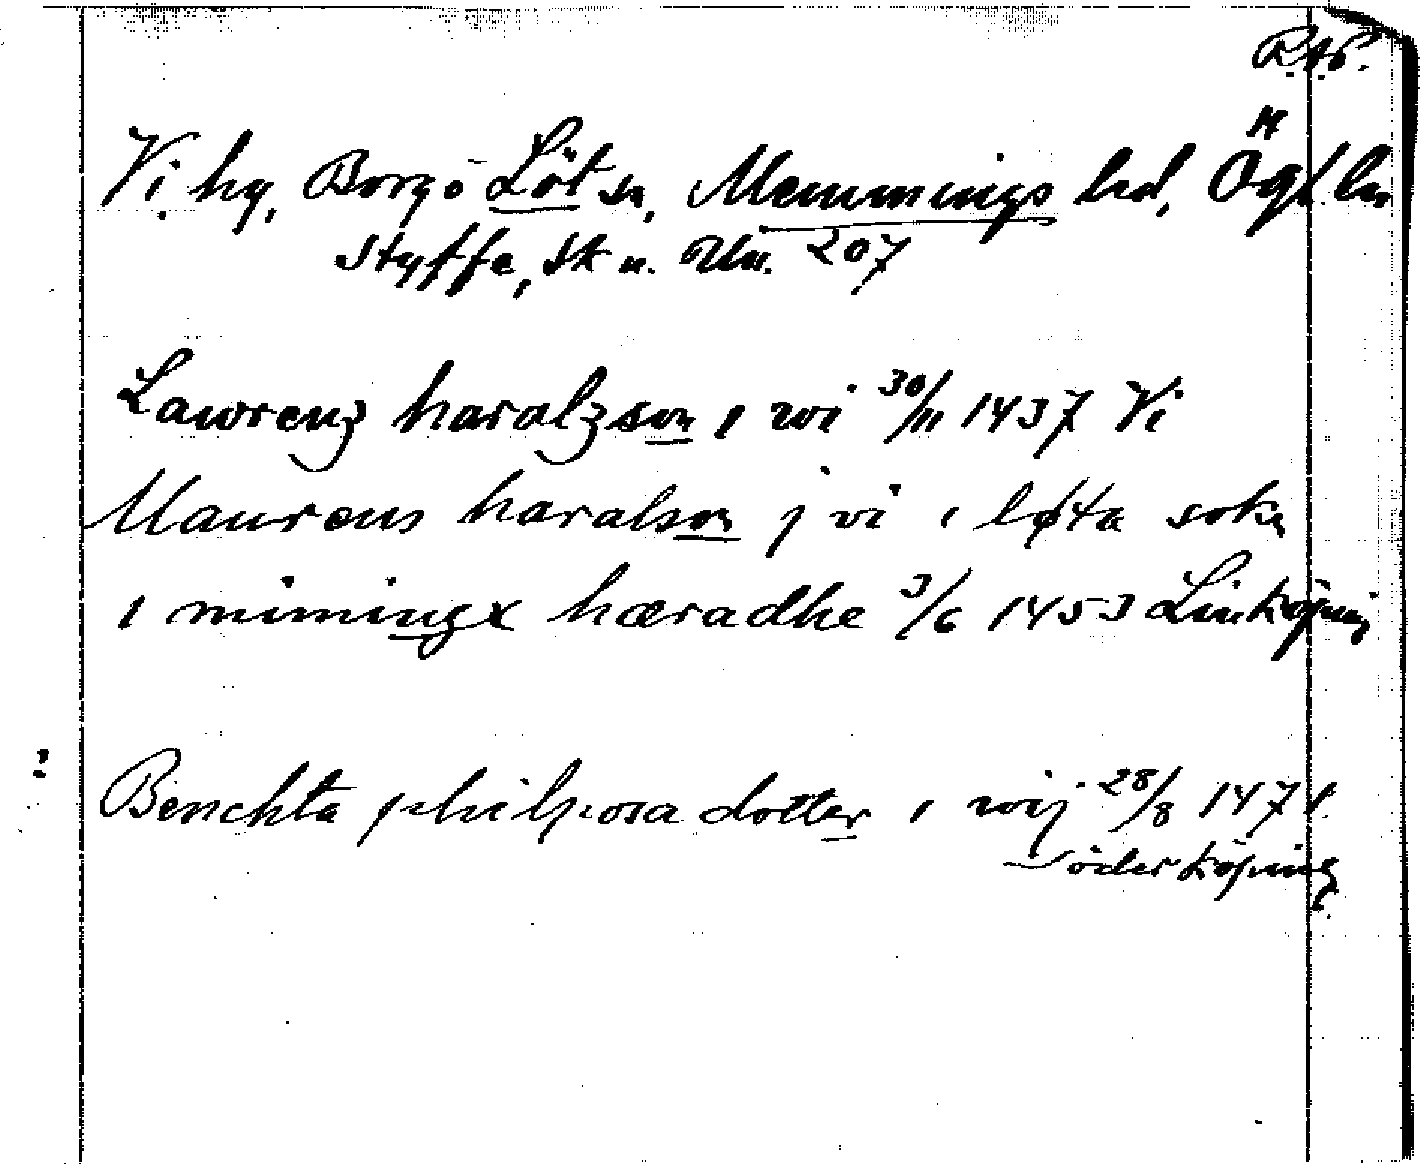 R.A.P.
Vi, hg, Borgö Löt sn, Memmings hd, Ögl ln
Styffe, Sk u. Un. 207
Lawrenz haralzson ı wi 30/11 1437 Vi
Maurens haralson j vi ı løta sokn
ı mimingx hæradhe 3/6 1453 Linköping
? Benchta philposa dotter ı wij 28/8 1471
Söderköping